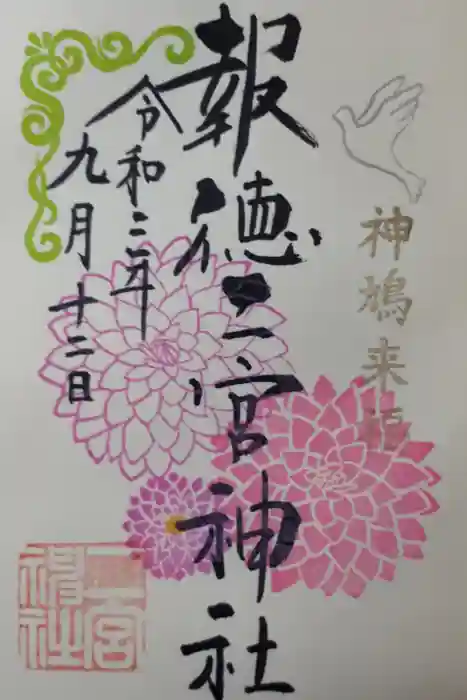 神鳩来福
報徳二宮神社
令和三年
九月十二日
二宮神社